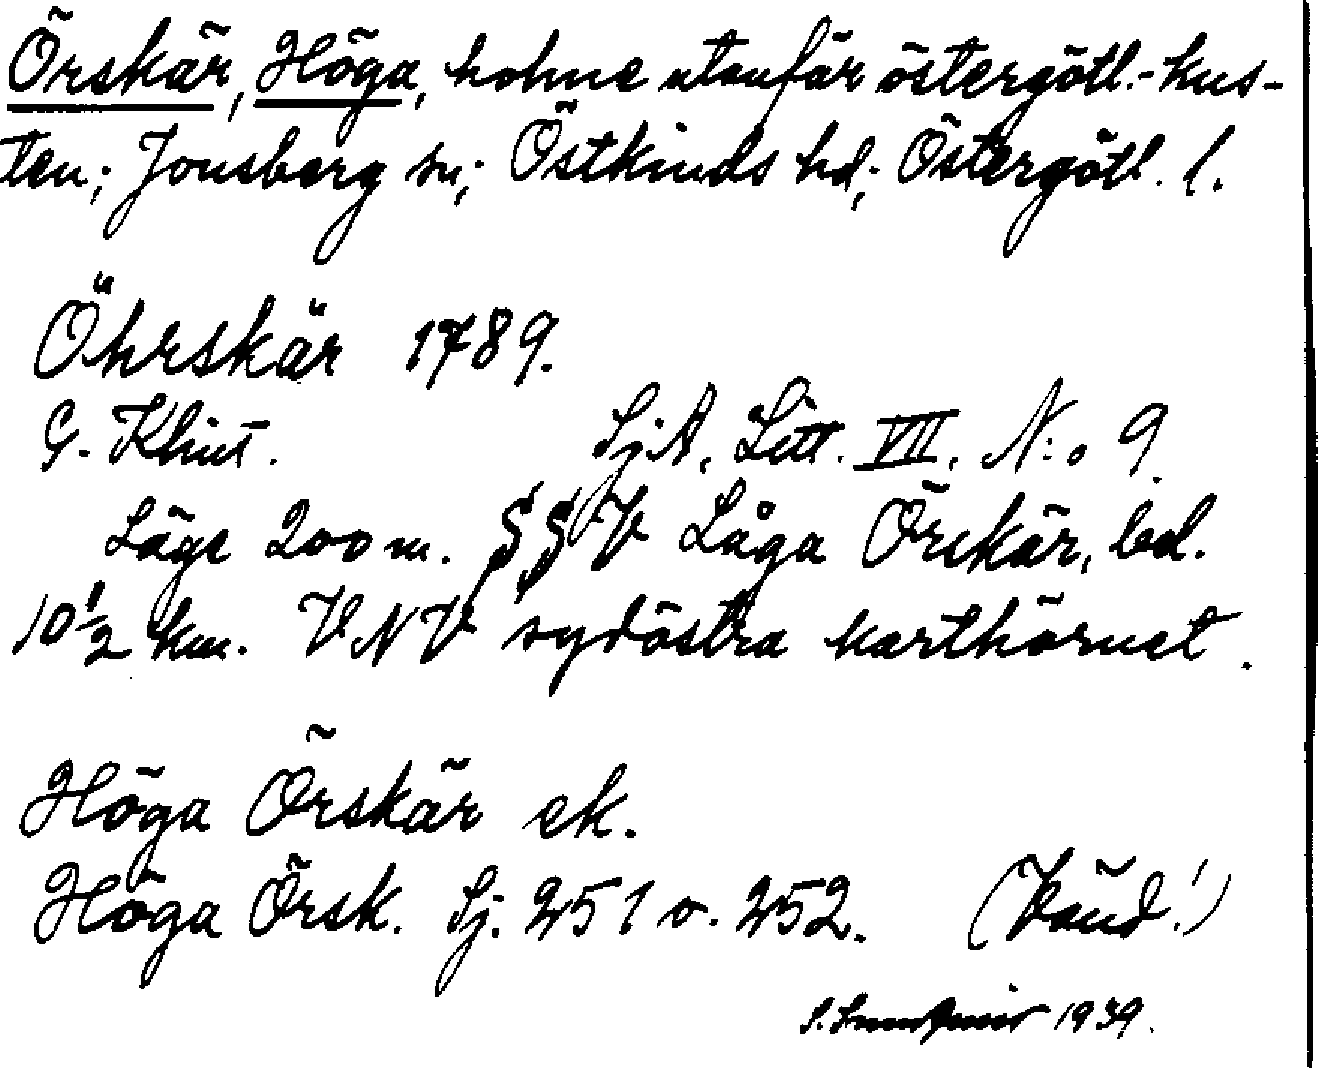 Örskär, Höga, holme utanför östergötl.-kus-
ten; Jonsberg sn; Östkinds hd; Östergötl. l.
Öhrskär 1789.
G. Klint. SjA, Litt. VII. N:o 9.
Läge 200 m. SSV Låga Örskär, bel.
10 1/2 km. VNV sydöstra karthörnet.
Höga Örskär ek.
Höga Örsk. Sj. 251 o. 252. (Vänd!)
1939.